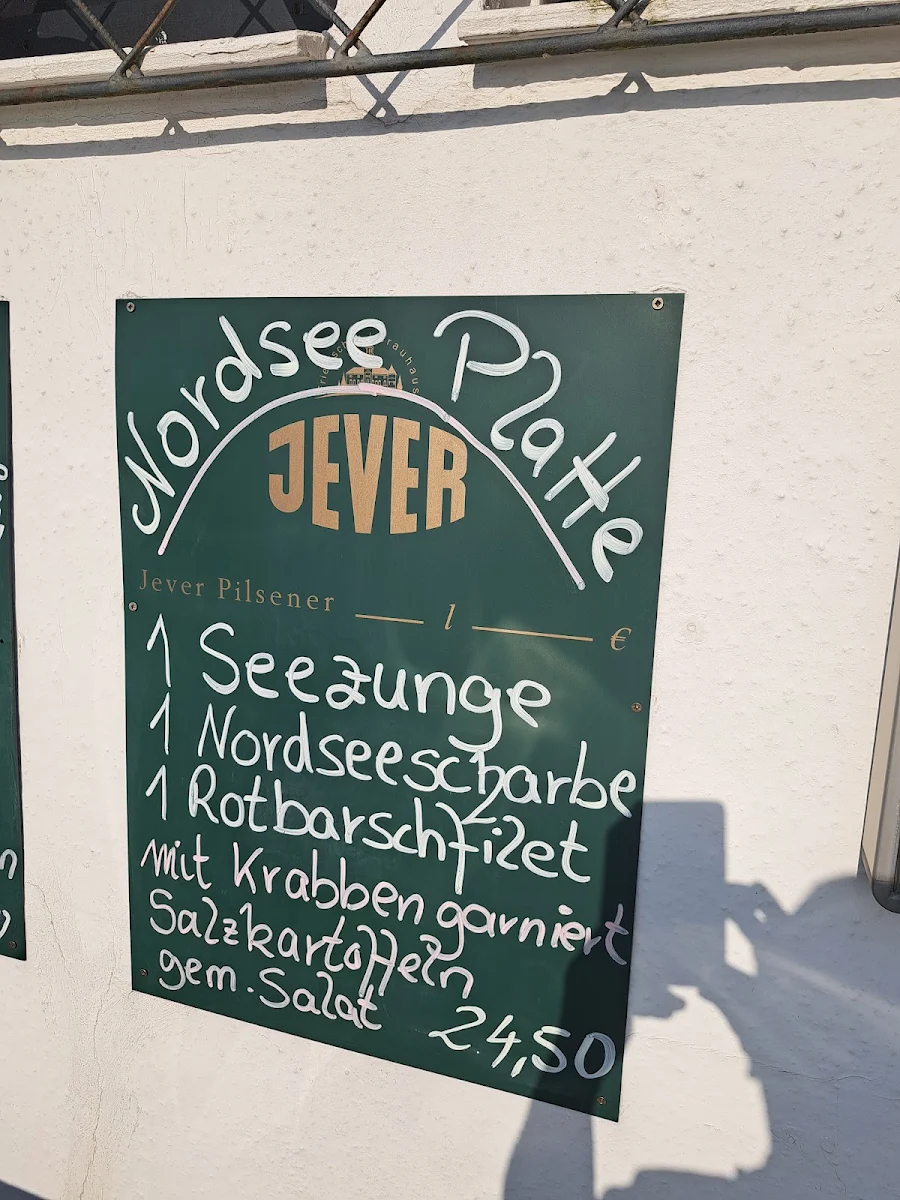 Nordsee Platte
JEVER
Jever Pilsener l €
1 Seezunge
1 Nordseescharbe
1 Rotbarschfilet
mit Krabben garniert
Salzkartoffeln
gem. Salat 24,50